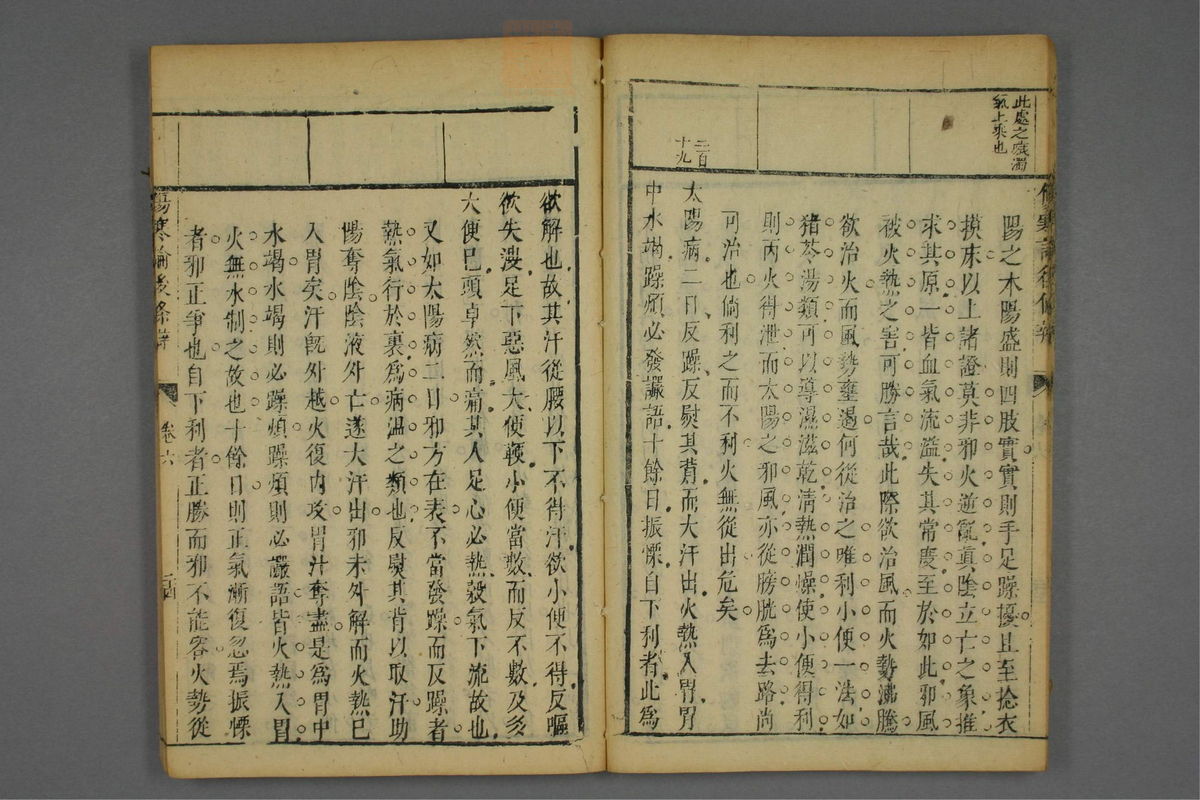 此處之喘濁
氣上乘也
傷寒論後條辨
陽之本陽盛則四肢實實則手足躁擾且至捻衣
摸床以上諸證莫非邪火逆竄真陰立亡之象推
求其原一皆血氣流溢失其常度至於如此邪風
被火熱之害可勝言哉此際欲治風而火勢沸騰
欲治火而風勢壅遏何從治之唯利小便一法如
猪苓湯類可以導濕滋乾清熱潤燥使小便得利
則丙火得泄而太陽之邪風亦從膀胱爲去路尚
可治也倘利之而不利火無從出危矣
二百
十九
太陽病二日反躁反熨其背而大汗出火熱入胃胃
中水竭躁煩必發讝語十餘日振慄自下利者此爲
欲解也故其汗從腰以下不得汗欲小便不得反嘔
欲失溲足下惡風大便鞕小便當數而反不數及多
大便已頭卓然而痛其人足心必熱穀氣下流故也
又如太陽病二日邪方在表不當發躁而反躁者
熱氣行於裏爲病溫之類也反熨其背以取汗助
陽奪陰陰液外亡遂大汗出邪未外解而火熱已
入胃矣汗旣外越火復內攻胃汁奪盡是爲胃中
水竭水竭則必躁煩躁煩則必讝語皆火熱入胃
火無水制之故也十餘日則正氣漸復忽焉振慄
者邪正爭也自下利者正勝而邪不能容火勢從
傷寒論後條辨
卷六